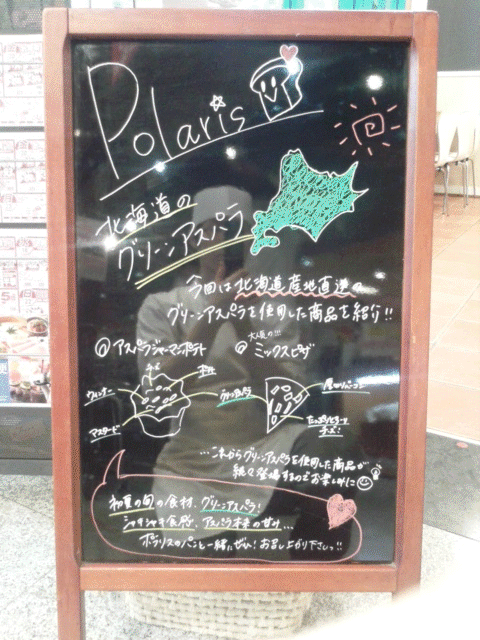 Polaris
北海道の
グリーンアスパラ
今回は北海道産地直送の
グリーンアスパラを使用した商品を紹介!!
@ アスパラジャーマンポテト
大人気の!!!
@ ミックスピザ
チーズ
ウィンナー
マスタード
グリーンアスパラ
チーズ!
...これからグリーンアスパラを使用した商品が
続々登場するのでお楽しみに
初夏の旬の食材、グリーンアスパラ!
シャキシャキ食感、アスパラ本来の甘み...
ポラリスのパンと一緒にぜひ!お召し上がり下さいっ!!